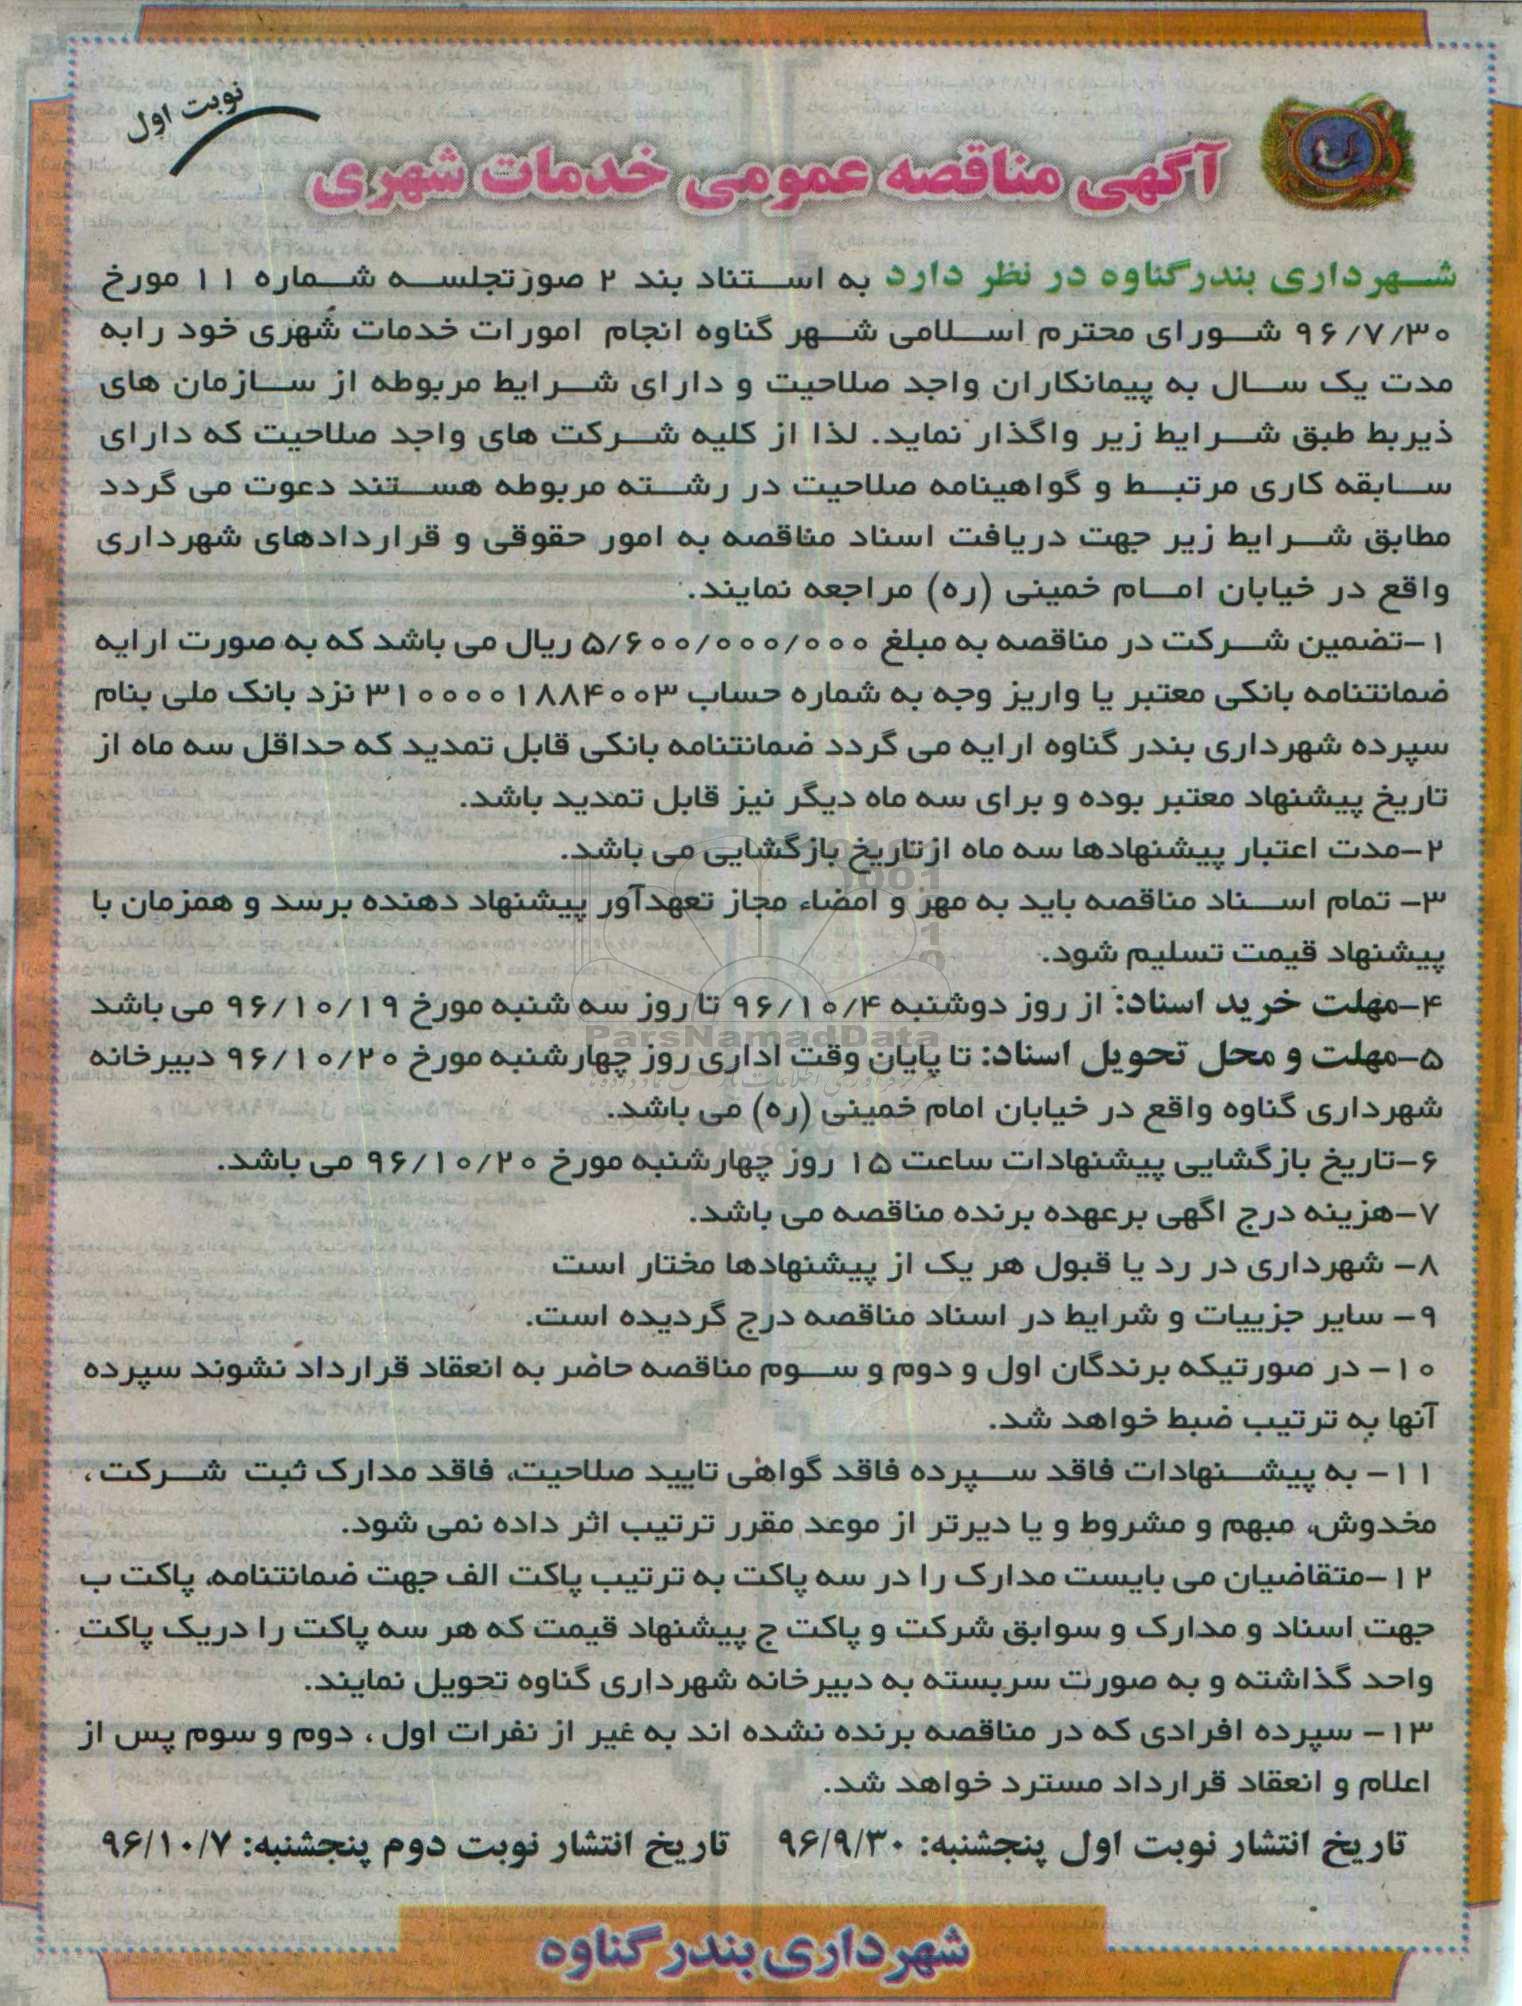 نوبت اول
آگهی مناقصه عمومی خدمات شهری
شهرداری بندرگناوه در نظر دارد به استناد بند ۲ صورتجلسه شماره ۱۱ مورخ
۹۶/۷/۳۰ شورای محترم اسلامی شهر گناوه انجام امورات خدمات شهری خود رابه
مدت یک سال به پیمانکاران واجد صلاحیت و دارای شرایط مربوطه از سازمان های
ذیربط طبق شرایط زیر واگذار نماید. لذا از کلیه شرکت های واجد صلاحیت که دارای
سابقه کاری مرتبط و گواهینامه صلاحیت در رشته مربوطه هستند دعوت می گردد
مطابق شرایط زیر جهت دریافت اسناد مناقصه به امور حقوقی و قراردادهای شهرداری
واقع در خیابان امام خمینی (ره) مراجعه نمایند.
۱-تضمین شرکت در مناقصه به مبلغ ۵/۶۰۰/۰۰۰/۰۰۰ ریال می باشد که به صورت ارایه
ضمانتنامه بانکی معتبر یا واریز وجه به شماره حساب ۳۱۰۰۰۰۱۸۸۴۰۰۳ نزد بانک ملی بنام
سپرده شهرداری بندر گناوه ارایه می گردد ضمانتنامه بانکی قابل تمدید که حداقل سه ماه از
تاریخ پیشنهاد معتبر بوده و برای سه ماه دیگر نیز قابل تمدید باشد.
۲-مدت اعتبار پیشنهادها سه ماه ازتاریخ بازگشایی می باشد.
۳- تمام اسناد مناقصه باید به مهر و امضاء مجاز تعهدآور پیشنهاد دهنده برسد و همزمان با
پیشنهاد قیمت تسلیم شود.
۴-مهلت خرید اسناد: از روز دوشنبه ۹۶/۱۰/۴ تا روز سه شنبه مورخ ۹۶/۱۰/۱۹ می باشد
ParsNamadData
۵-مهلت و محل تحویل اسناد: تا پایان وقت اداری روز چهارشنبه مورخ ۹۶/۱۰/۲۰ دبیرخانه
شهرداری گناوه واقع در خیابان امام خمینی (ره) می باشد.
۶-تاریخ بازگشایی پیشنهادات ساعت ۱۵ روز چهارشنبه مورخ ۹۶/۱۰/۲۰ می باشد.
۷-هزینه درج اگهی برعهده برنده مناقصه می باشد.
۸- شهرداری در رد یا قبول هر یک از پیشنهادها مختار است
۹- سایر جزییات و شرایط در اسناد مناقصه درج گردیده است.
۱۰- در صورتیکه برندگان اول و دوم و سوم مناقصه حاضر به انعقاد قرارداد نشوند سپرده
آنها به ترتیب ضبط خواهد شد.
۱۱- به پیشنهادات فاقد سپرده فاقد گواهی تایید صلاحیت، فاقد مدارک ثبت شرکت،
مخدوش، مبهم و مشروط و یا دیرتر از موعد مقرر ترتیب اثر داده نمی شود.
۱۲-متقاضیان می بایست مدارک را در سه پاکت به ترتیب پاکت الف جهت ضمانتنامه، پاکت ب
جهت اسناد و مدارک و سوابق شرکت و پاکت ج پیشنهاد قیمت که هر سه پاکت را دریک پاکت
واحد گذاشته و به صورت سربسته به دبیرخانه شهرداری گناوه تحویل نمایند.
۱۳- سپرده افرادی که در مناقصه برنده نشده اند به غیر از نفرات اول، دوم و سوم پس از
اعلام و انعقاد قرارداد مسترد خواهد شد.
تاریخ انتشار نوبت اول پنجشنبه: ۹۶/۹/۳۰ تاریخ انتشار نوبت دوم پنجشنبه: ۹۶/۱۰/۷
شهرداری بندر گناوه